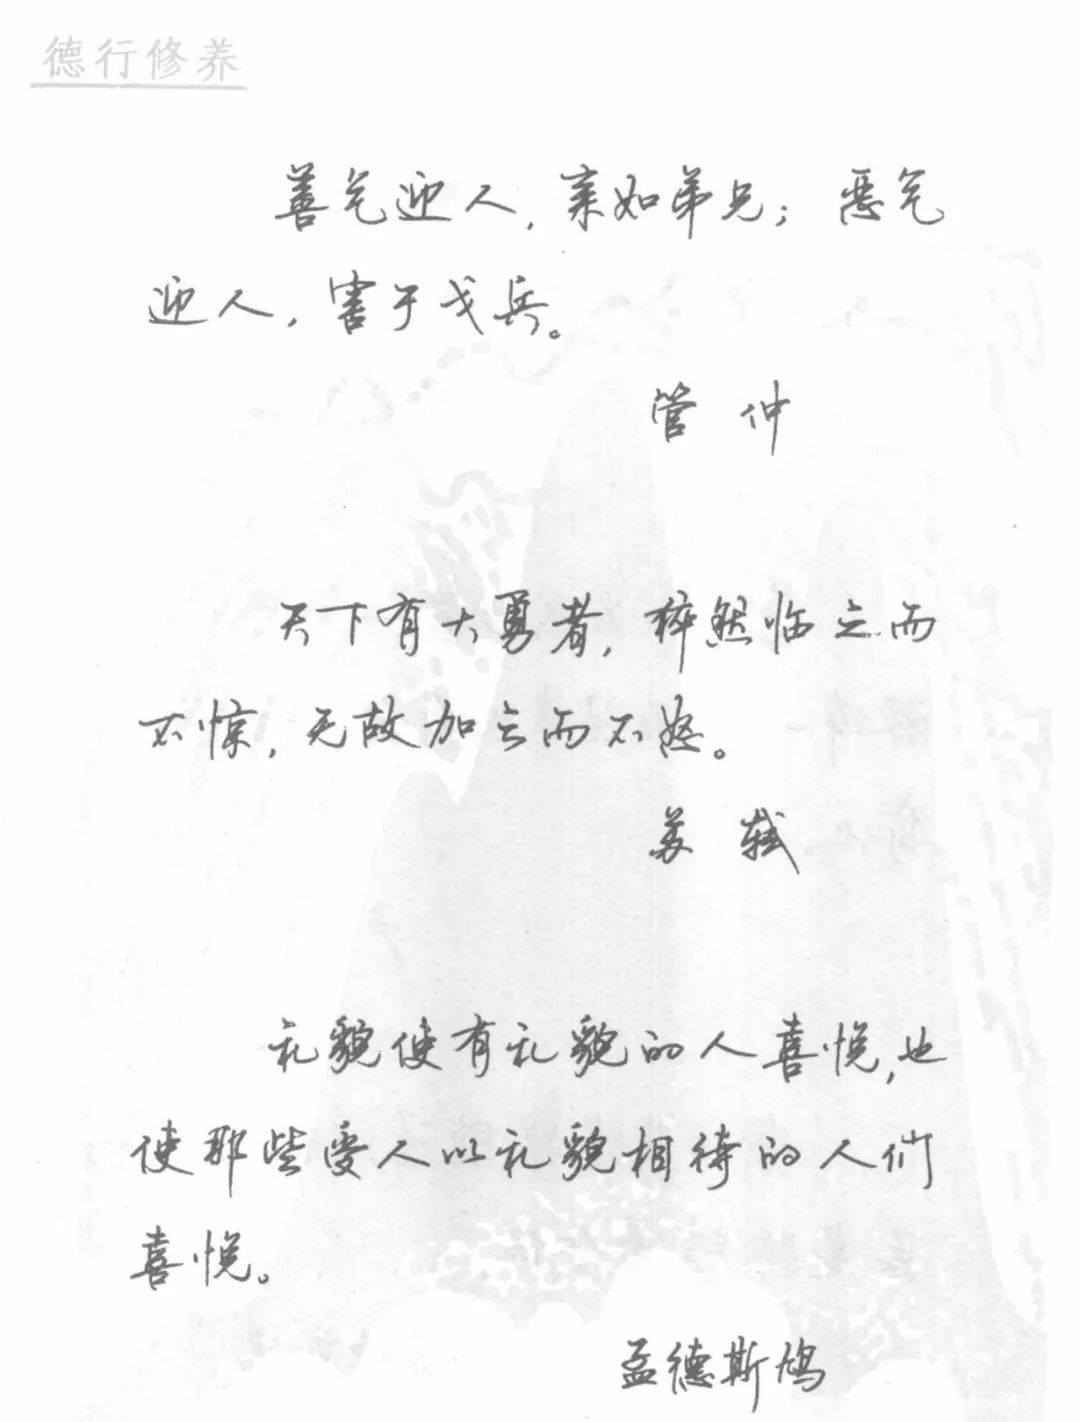 德行修养
善气迎人，亲如弟兄；恶气
迎人，害于戈兵。
管仲
天下有大勇者，猝然临之而
不惊，无故加之而不怒。
苏轼
礼貌使有礼貌的人喜悦，也
使那些受人以礼貌相待的人们
喜悦。
孟德斯鸠